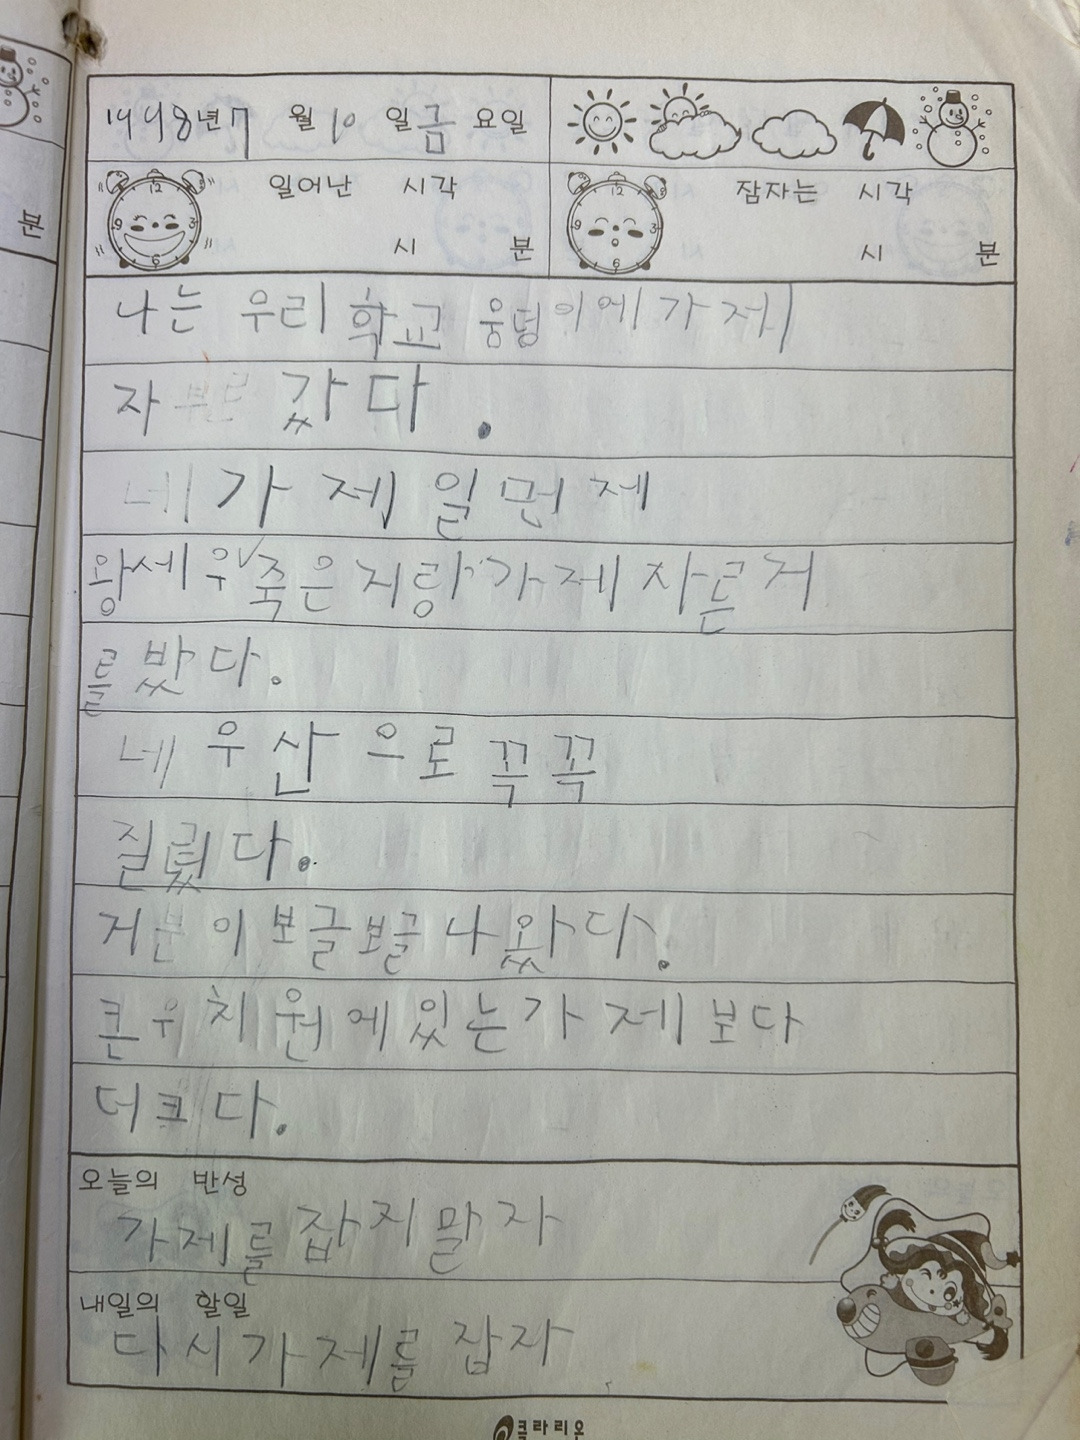 1998년 7 월 10 일 금 요일
일어난 시각
시 분
잠자는 시각
시 분
분
나는 우리 학교 웅덩이에 가제
자부르 갔다.
네가 제일 먼제
왕세우 죽은지랑 가제자른거
를 봤다.
네 우산으로 꼭꼭
질렀다.
거분이 보글보글 나왔다.
큰 우치원에 있는 가제보다
더크다.
오늘의 반성
가제를 잡지말자
내일의 할일
다시 가제를 잡자
클라리온